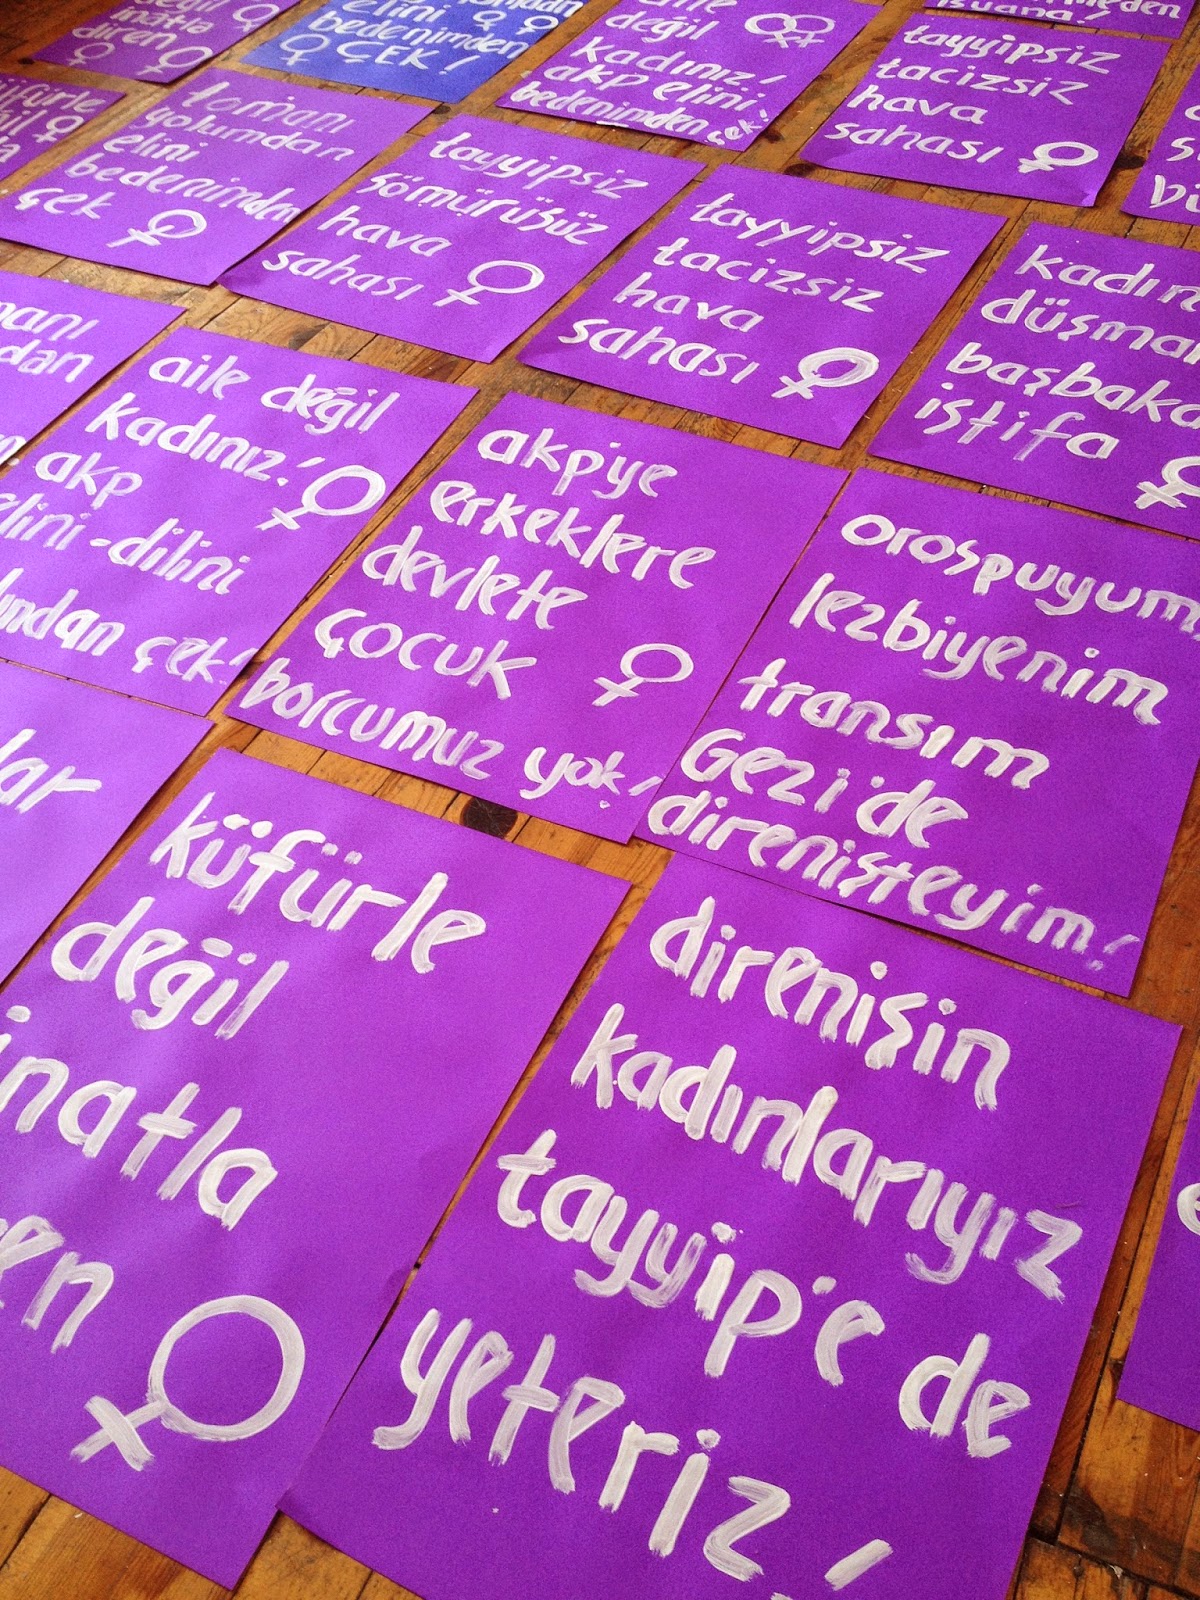 değil
inatla
diren
elini
bedenimden
ÇEK!
değil
kadınız!
akp elini
bedenimden çek!
tayyipsiz
tacizsiz
hava
sahası
küfürle
değil
ormanı
yolumdan
elini
bedenimden
çek
tayyipsiz
sömürüsüz
hava
sahası
tayyipsiz
tacizsiz
hava
sahası
kadın
başbakan
istifa
aile değil
kadınız!
akp
elini-dilini
çek!
akp'ye
erkeklere
devlete
çocuk
borcumuz yok!
orospuyum
lezbiyenim
transım
Gezi'de
direnişteyim!
küfürle
değil
inatla
diren
direnişin
kadınlarıyız
tayyip'e de
yeteriz!